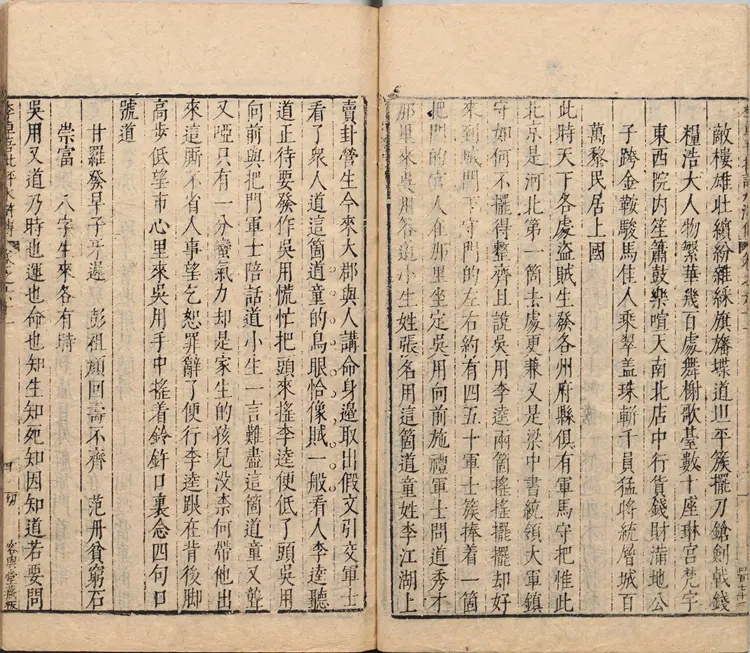 敵樓雄壯繽紛雜綵旗旛堞道坦平簇擺刀鎗劍戟錢
糧浩大人物繁華幾百處舞榭歌臺數十座琳宮梵宇
東西院內笙簫鼓樂喧天南北店中行貨錢財滿地公
子跨金鞍駿馬佳人乘翠盖珠軿千員猛將統層城百
萬黎民居上國
此時天下各處盜賊生發各州府縣俱有軍馬守把惟此
北京是河北第一箇去處更兼又是梁中書統領大軍鎮
守如何不擺得整齊且說吳用李逵兩箇搖搖擺擺却好
來到城門下守門的左右約有四五十軍士簇捧着一箇
把門的官人在那里坐定吳用向前施禮軍士問道秀才
那里來吳用答道小生姓張名用這箇道童姓李江湖上
賣卦營生今來大郡與人講命身邊取出假文引交軍士
看了衆人道這箇道童的鳥眼恰像賊一般看人李逵聽
道正待要發作吳用慌忙把頭來搖李逵便低了頭吳用
向前與把門軍士陪話道小生一言難盡這箇道童又聾
又啞只有一分蠻氣力却是家生的孩兒沒柰何帶他出
來這厮不省人事望乞恕罪辭了便行李逵跟在背後脚
高步低望市心里來吳用手中搖着鈴杵口裏念四句口
號道
甘羅發早子牙遲 彭祖顏回壽不齊 范丹貧窮石
崇富 八字生來各有時
吳用又道乃時也運也命也知生知死知因知道若要問
李卓吾批評水滸傳
四
容與堂藏板